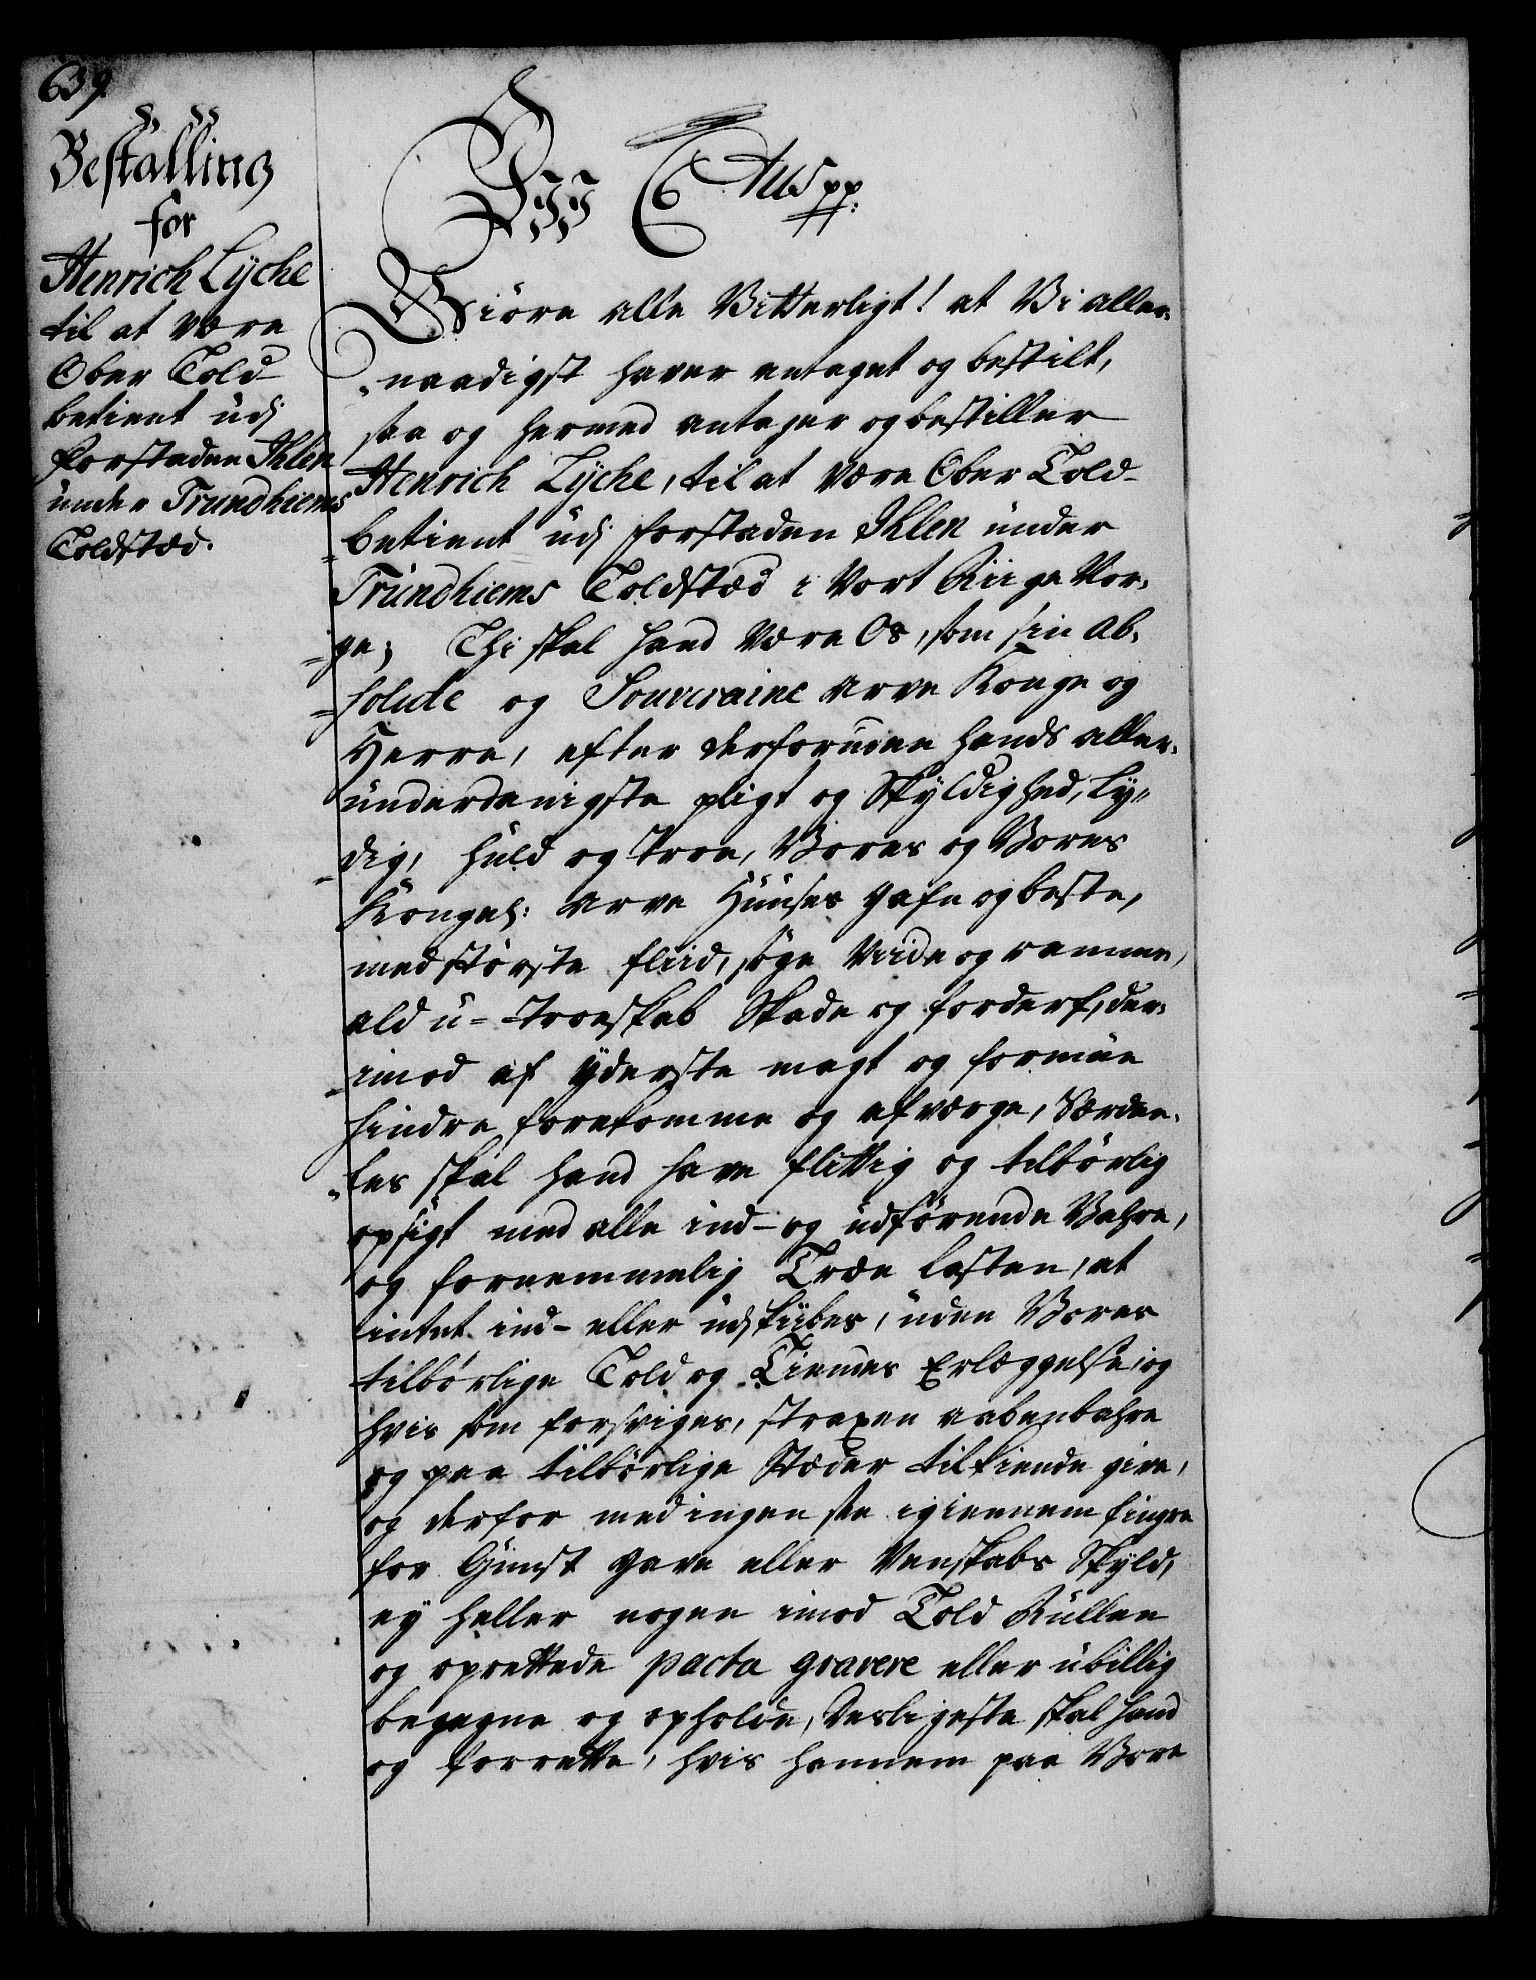 639.
Bestalling
for
Henrich Lyche
til at være
Ober Told-
betient udj
forstaden Ihlen
under Trundhiems
Toldstæd.
Wii C Tus pp:
Giöre alle Vitterligt! at Vi aller-
naadigst haver antaget og bestilt,
saa og hermed antager og bestiller
Henrich Lyche, til at være Ober Told-
betient udj forstaden Ihlen under
Trundhiems Toldstæd i Vort Riige Nor-
ge; Thi skal hand være Os, som sin Ab-
solute og Souveraine Arve Konge og
Herre, efter derforuden hands aller-
underdanigste pligt og Skyldighed, Ly-
dig, huld og troe, Vores og Vores
Kongel: Arve Huuses gafn og beste,
med störste fliid, söge Viide og ramme,
ald u-troeskab Skade og forderf, der-
imod af yderste magt og formue
hindre forekomme og afværge, Særde-
les skal hand have flittig og tilbörlig
opsigt med alle ind- og udförende Vahre,
og fornemmelig Træe lasten, at
intet ind- eller udskibes, uden Vores
tilbörlige Told og Tiendes Erlæggelse, og
hvis som forsviges, straxen aabenbahre
og paa tilbörlige Stæder tilkiende give,
og derfor med ingen see igiennem fingre
for Gunst gave eller Venskabs Skyld,
ey heller nogen imod Told Rullen
og oprettede pacta gravere eller ubillig
begegne og opholde, Desligeste skal hand
og forrette, hvis hannem paa Vore